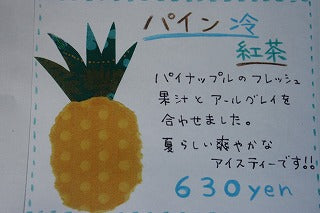 パイン冷
紅茶
パイナップルのフレッシュ
果汁とアールグレイを
合わせました。
夏らしい爽やかな
アイスティーです!!
630yen